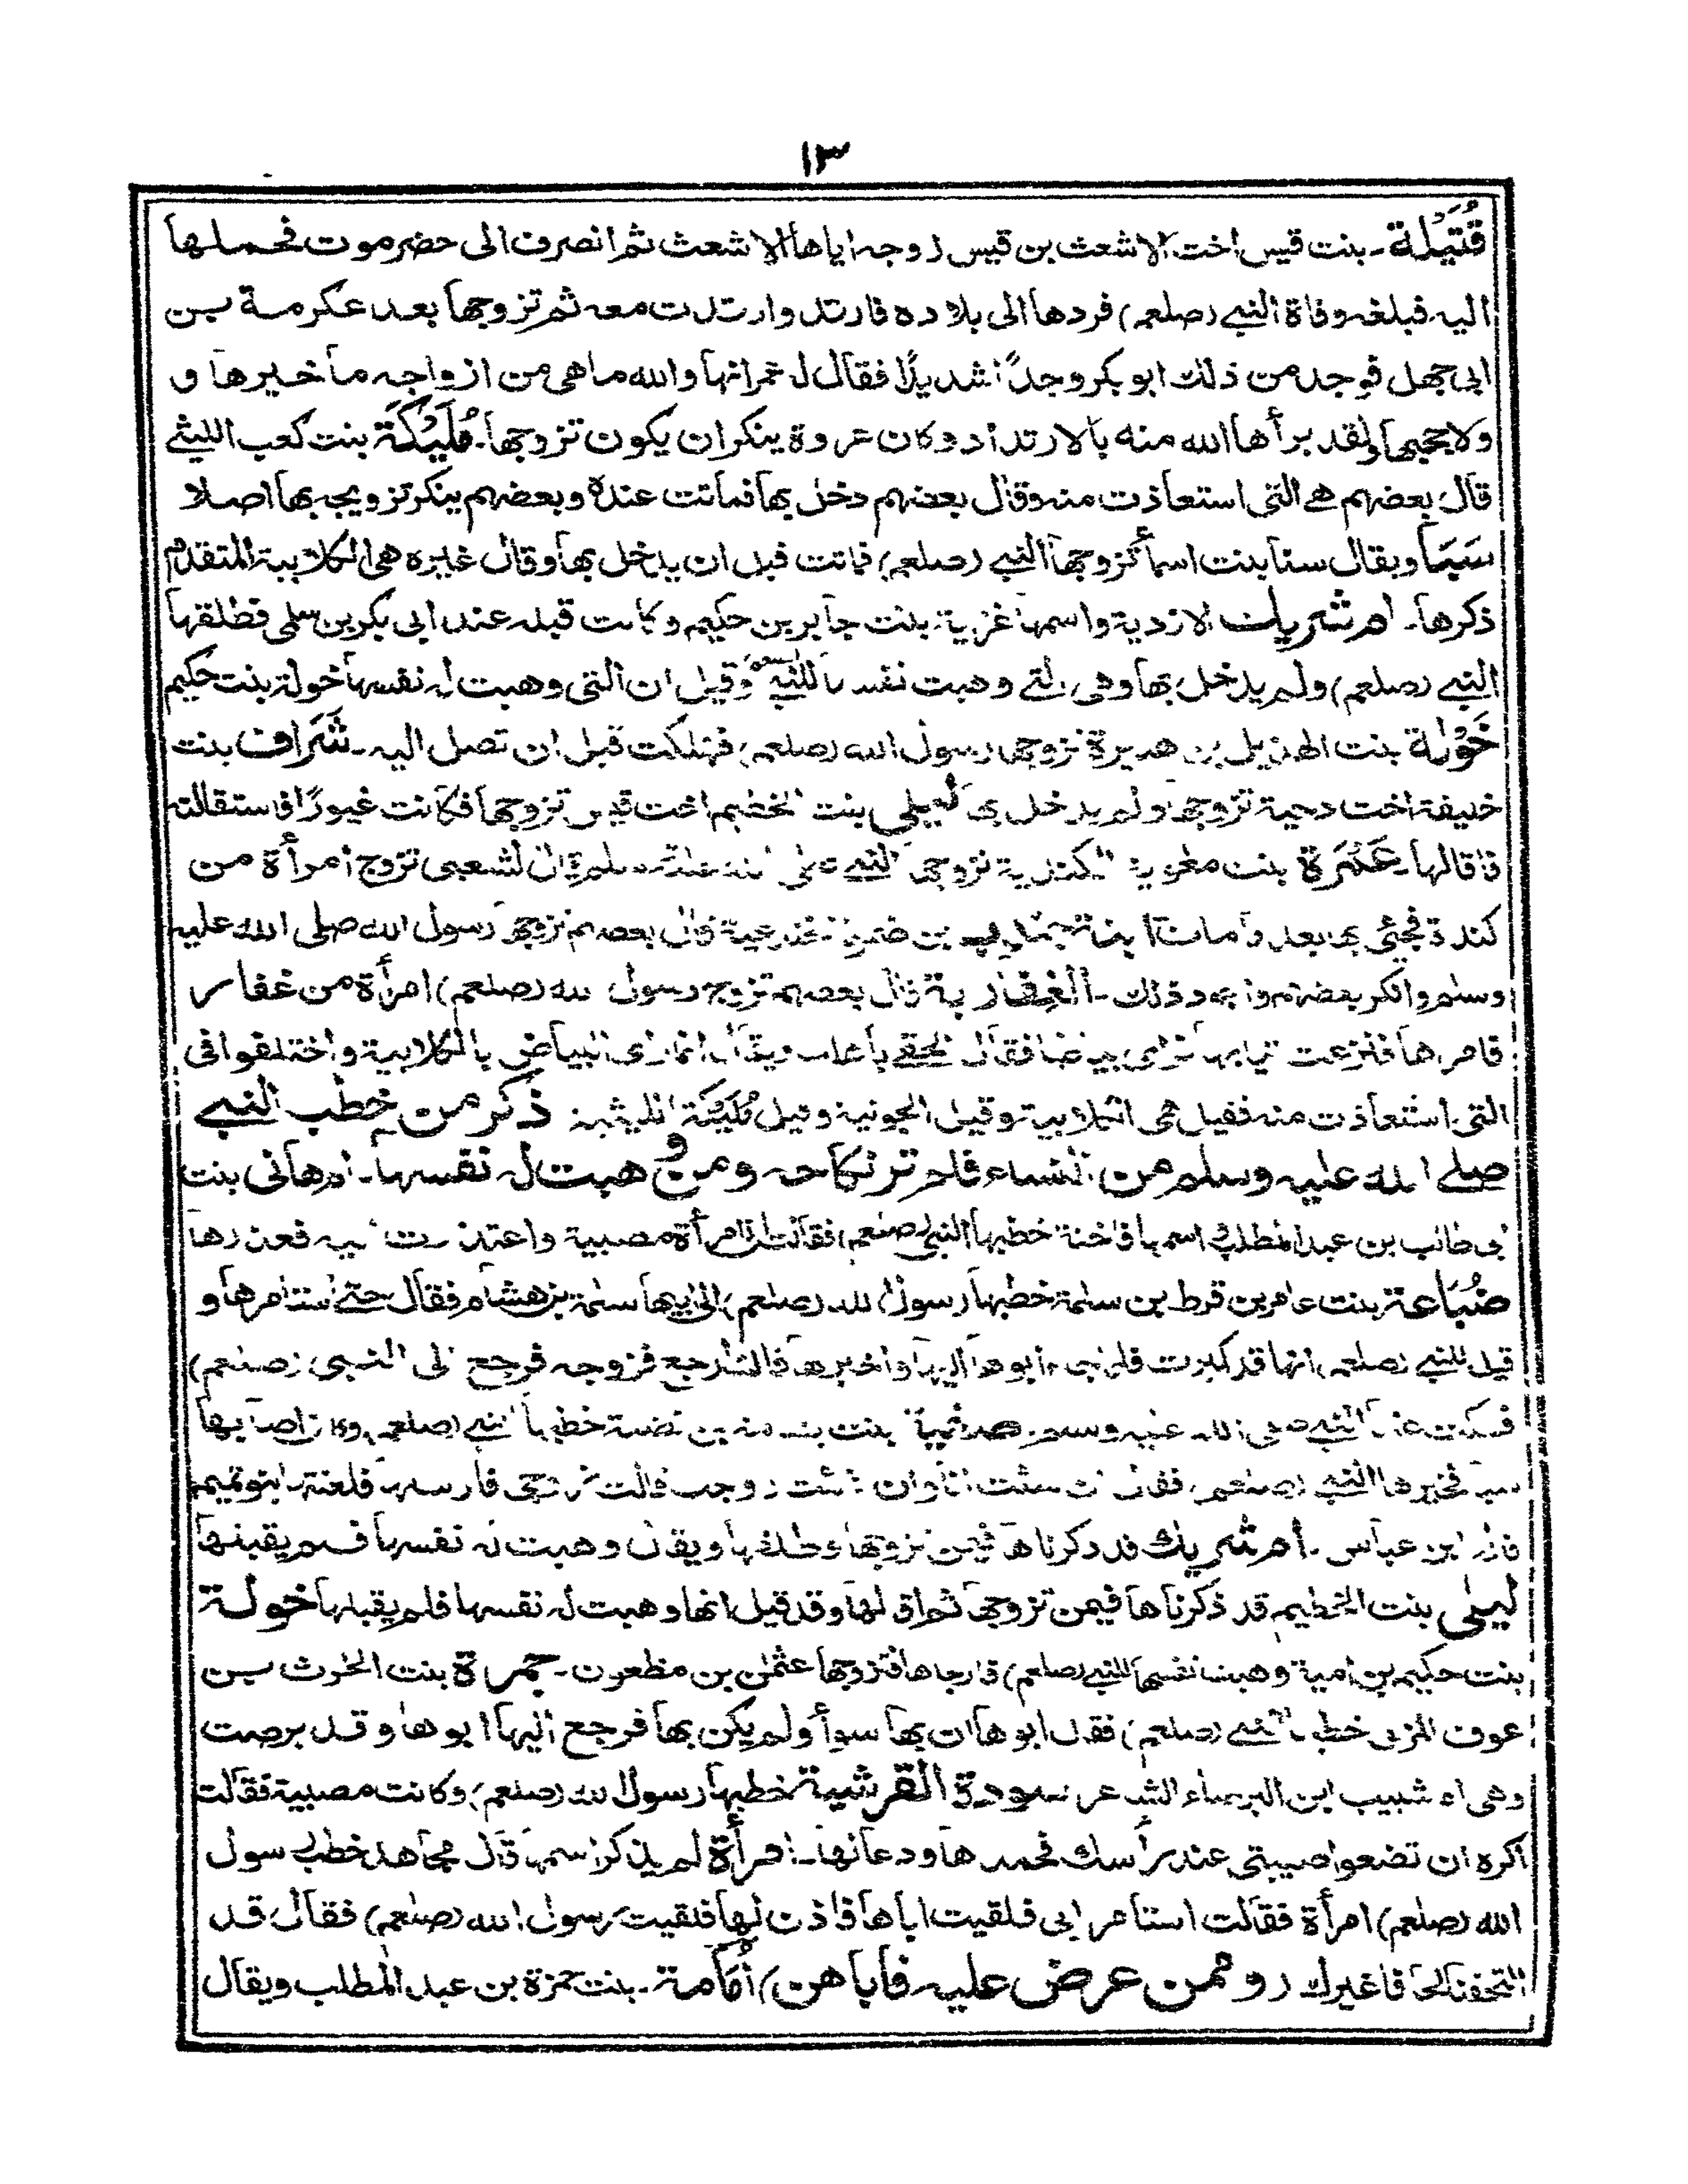 ١٣
قُتَيْلة ـ بنت قيس اخت الاشعث بن قيس زوجه اياها الاشعث ثم انصرف الى حضرموت فحملها
اليه فبلغه وفاة النبي (صلعم) فردها الى بلاده فارتد وارتدت معه ثم تزوجها بعد عكرمة بن
ابي جهل فوجد من ذلك ابو بكر وجدًا شديدًا فقال له عمر انها والله ما هي من ازواجه ما خيرها و
ولا حجبها لقد برأها الله منه بالارتداد وكان عروة ينكر ان يكون تزوجها ـ مُلَيْكَة بنت كعب الليثي
قال بعضهم هي التي استعاذت منه وقال بعضهم دخل بها فماتت عنده وبعضهم ينكر تزويجه بها اصلا
سَبَا ويقال سنا بنت اسما تزوجها النبي (صلعم) فماتت قبل ان يدخل بها وقال غيره هي الكلابية المتقدم
ذكرها ـ ام شريك الازدية واسمها غزية بنت جابر بن حكيم وكانت قبله عند ابي بكر بن سلمى فطلقها
النبي (صلعم) ولم يدخل بها وهي التي وهبت نفسها للنبي وقيل ان التي وهبت له نفسها خولة بنت حكيم
خَوْلة بنت الهذيل بن هبيرة تزوجها رسول الله (صلعم) فهلكت قبل ان تصل اليه ـ شَرَاف بنت
خليفة اخت دحية تزوجها ولم يدخل بها ليلى بنت الخطيم اخت قيس تزوجها فكانت غيورًا فاستقالته
فاقالها ـ عَمْرَة بنت معوية الكندية تزوجها النبي قال الشعبي تزوج امرأة من
كندة فجئي بها بعد ما مات ابنة جندب بن ضمرة الجندعية قال بعضهم تزوجها رسول الله صلى الله عليه
وسلم وانكر بعضهم وجود ذلك ـ الغِفَارية قال بعضهم تزوج رسول الله (صلعم) امرأة من غفار
فامرها فنزعت ثيابها فراى بياضا فقال الحقي باهلك ويقال انما راى البياض بالكلابية واختلفوا في
التي استعاذت منه فقيل هي الكلابية وقيل الجونية وقيل مُلَيْكَة الليثية ذكر من خطب النبي
صلى الله عليه وسلم من النساء فلم تر نكاحه ومن وهبت له نفسها ـ ام هاني بنت
ابي طالب بن عبد المطلب اسمها فاختة خطبها النبي (صلعم) فقالت اني امرأة مصبية واعتذرت اليه فعذرها
ضُبَاعة بنت عامر بن قرط بن سلمة خطبها رسول الله (صلعم) الى ابيها سلمة بن هشام فقال حتى استامرها و
قيل للنبي (صلعم) انها قد كبرت فلما ابوها اليها واخبرها قالت ارجع فزوجه فرجع الى النبي (صلعم)
فسكت عنها النبي صلى الله عليه وسلم صفية بنت بشامة بن نضلة خطبها النبي (صلعم) وكان اصابها
سبي فخيرها النبي (صلعم) فقال ان شئت انا وان شئت زوجك قالت زوجي فارسلها فلعنتها بنو تميم
قاله ابن عباس ـ ام شريك قد ذكرناها فيمن تزوجها وطلقها ويقال وهبت له نفسها فلم يقبلها
ليلى بنت الخطيم قد ذكرناها فيمن تزوجها ثم اقالها وقد قيل انها وهبت له نفسها فلم يقبلها خولة
بنت حكيم بن امية وهبت نفسها للنبي (صلعم) فارجاها فتزوجها عثمن بن مظعون ـ جمرة بنت الحٰرث بن
عوف المزني خطبها النبي (صلعم) فقال ابوها ان بها سوأ ولم يكن بها فرجع اليها ابوها وقد برصت
وهي ام شبيب ابن البرصاء الشاعر سودة القرشية خطبها رسول الله (صلعم) وكانت مصبية فقالت
اكره ان تضعوا صبيتي عند رأسك فحمدها ودعا لها ـ امرأة لم يذكر اسمها قال مجاهد خطب رسول
الله (صلعم) امرأة فقالت استامر ابي فلقيت اباها فاذن لها فلقيت رسول الله (صلعم) فقال قد
التحفنا لحافا غيرك (وممن عرض عليه فاباهن) أمَامة ـ بنت حمزة بن عبد المطلب ويقال